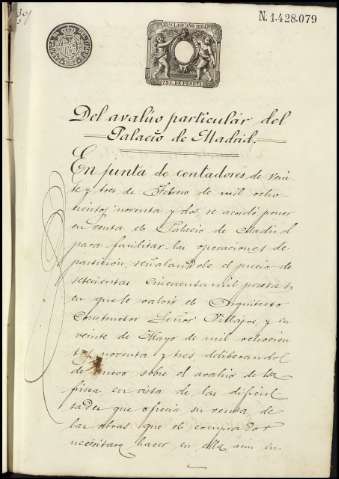 N. 1.428.079
Del avalúo particular del
Palacio de Madrid.
En junta de contadores de vein
te y tres de Febrero de mil ocho
cientos noventa y dos, se acordó poner
en venta el Palacio de Madrid
para facilitar las operaciones de
partición señalandole el precio de
setecientas cincuenta mil pesetas
en que le valoró el Arquitecto
Constructor Señor Villajos y en
veinte de Mayo de mil ochocien
tos noventa y tres deliberandose
de nuevo sobre el avalúo de la
finca en vista de las dificul
tades que ofrecia su venta, de
las obras que el comprador
necesitara hacer en ella aun en